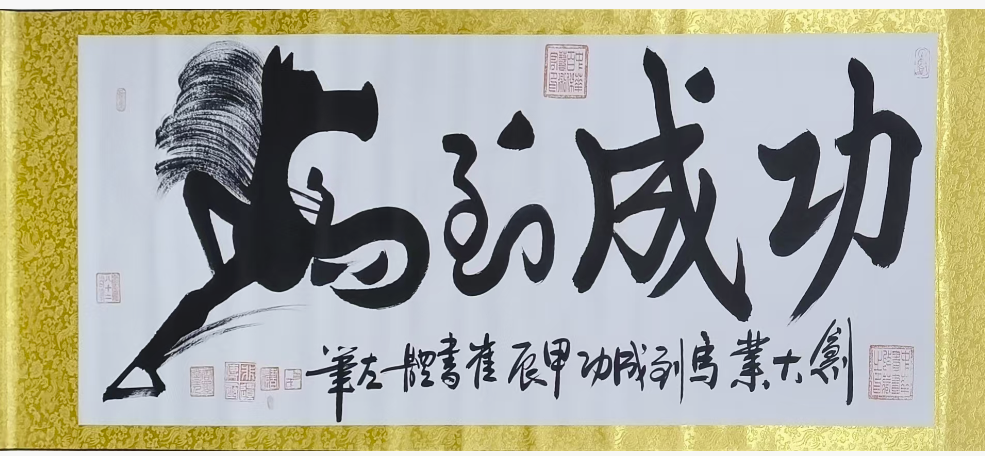 馬到成功
創大業馬到成功甲辰崔書體左筆